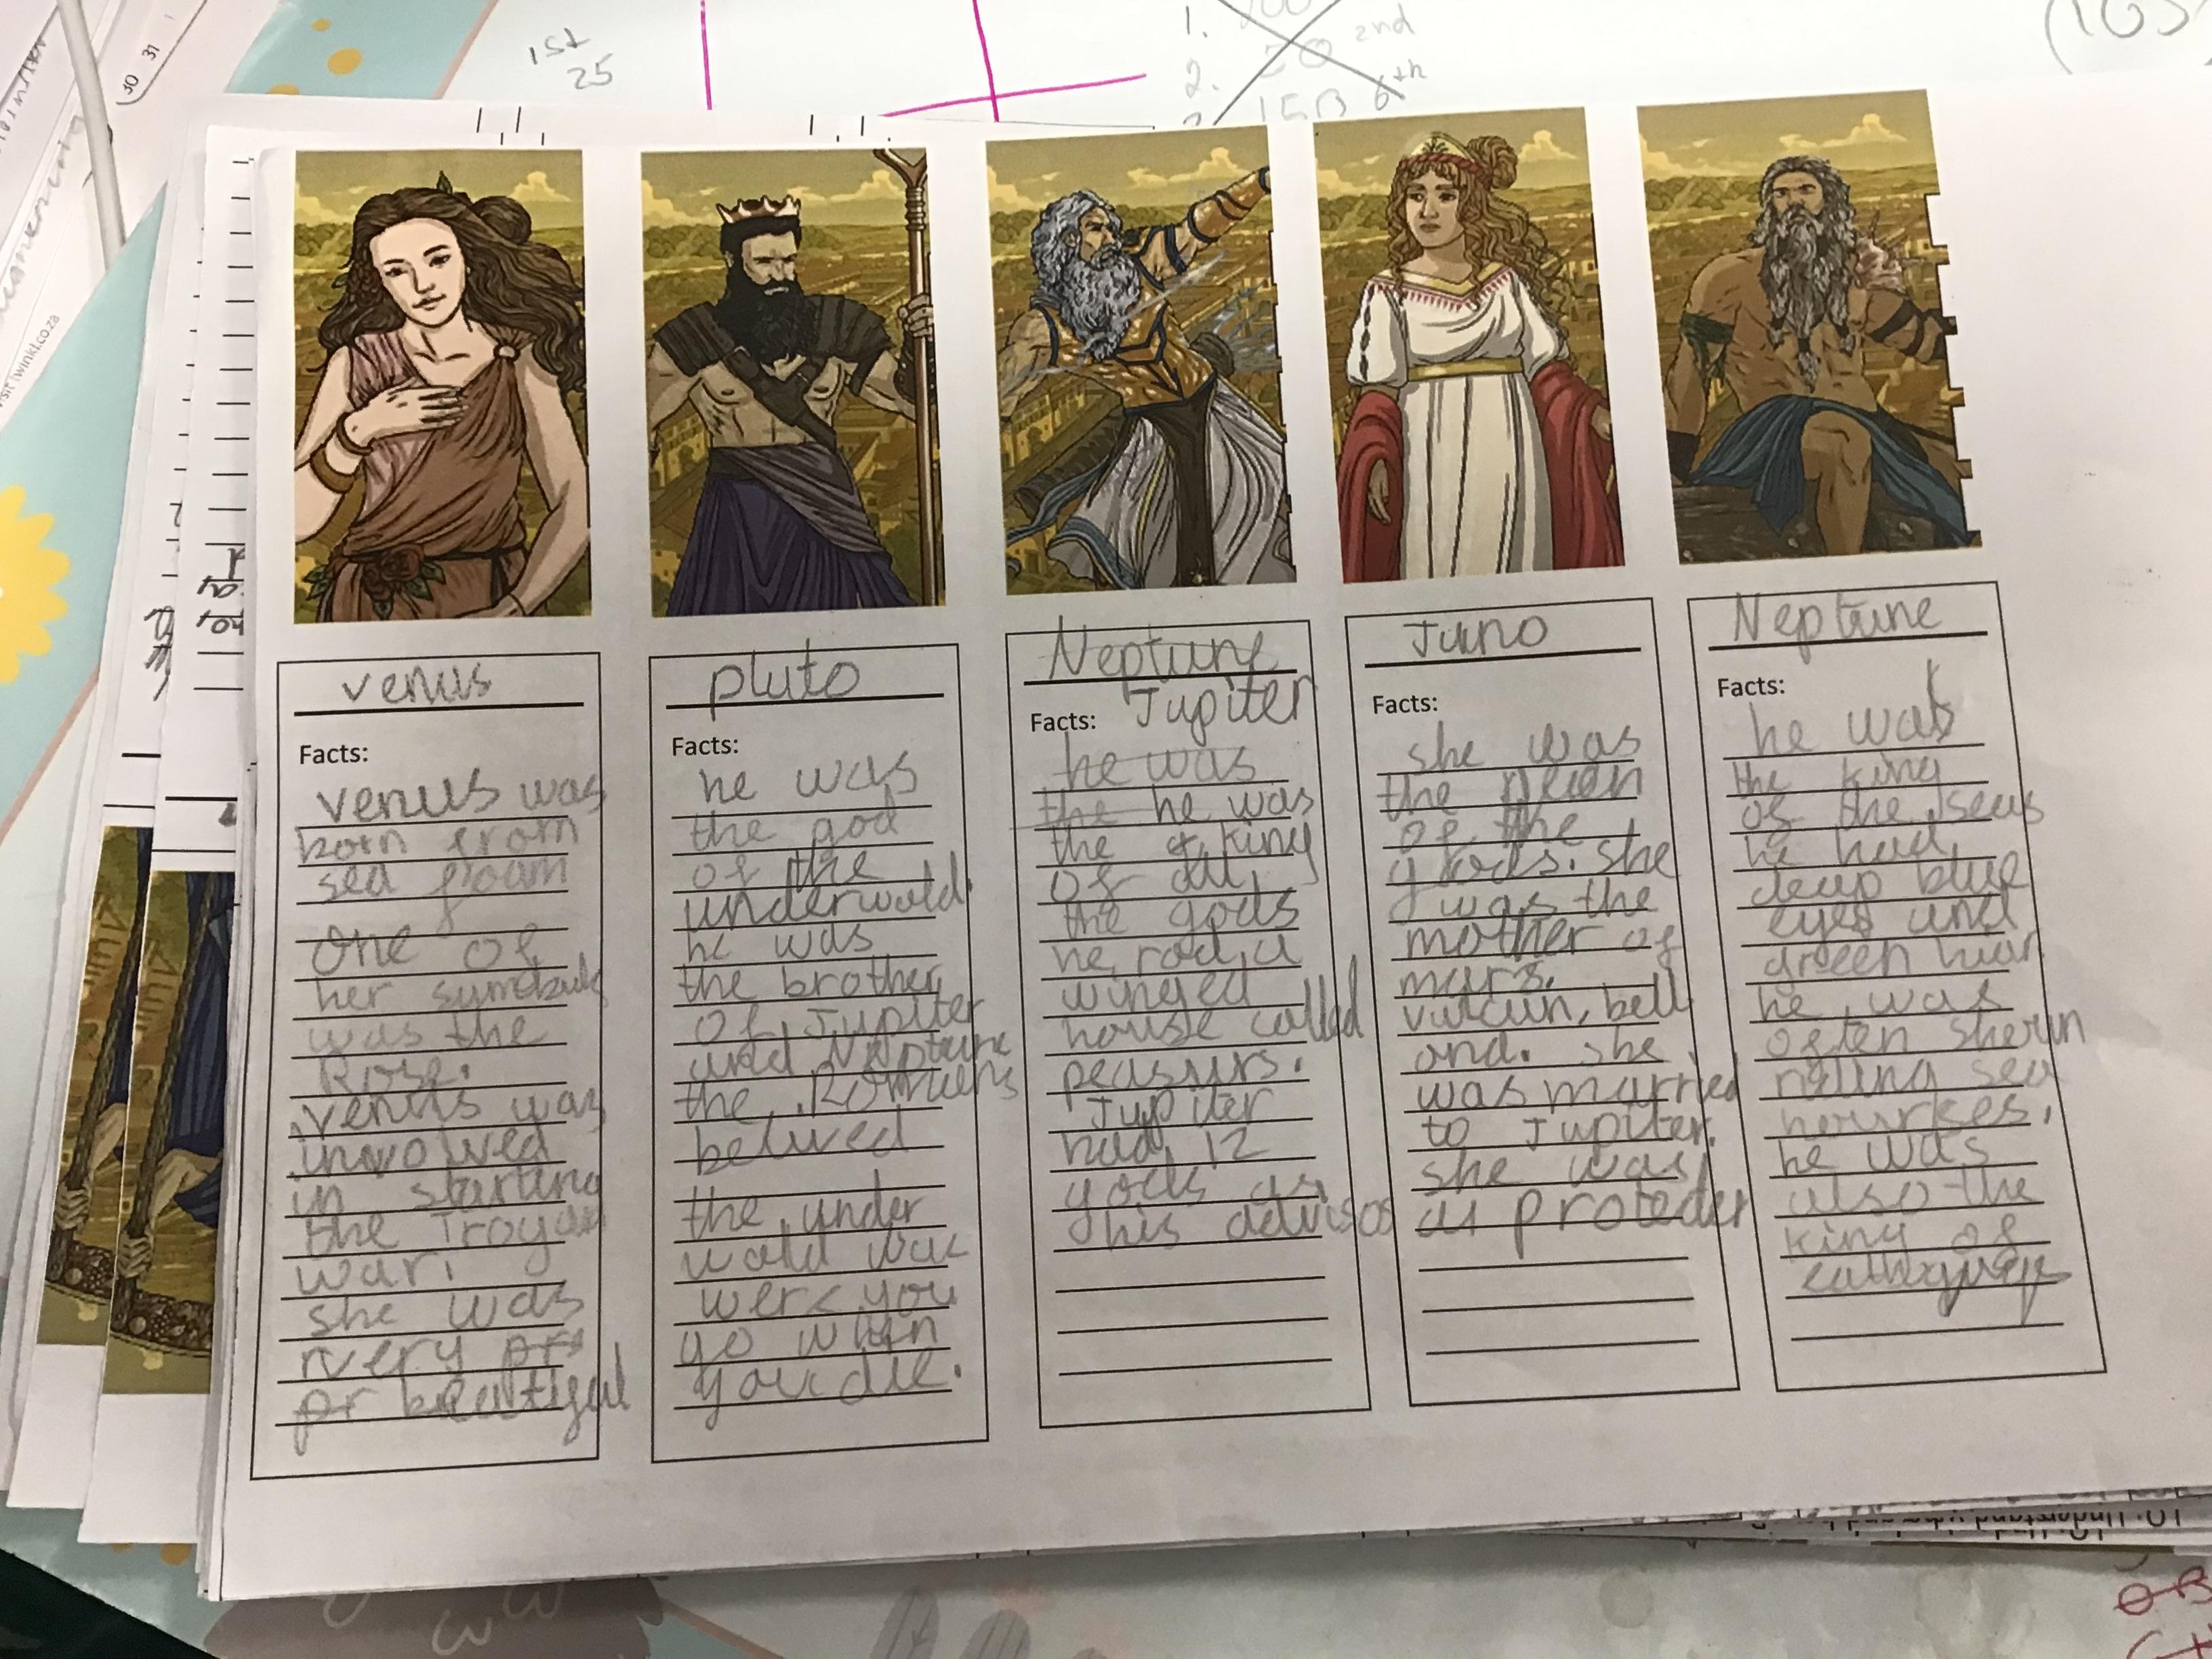 1st
25
1.
2.
2nd
6th
30 31
visit twinkl.co.za
venus
Facts:
venus was
born from
sea foam
One of
her
was the
Rose.
venus was
invo wed
in starting
the Troyan
war.
she was
very
pr beautyful
pluto
Facts:
he was
the god
of the
underworld.
he was
the brother
of Jupiter
and Neptune
the Romens
beluved
the under
wold was
were you
go when
you die.
Neptune
Jupiter
Facts:
he was
the he was
the king
of all
the gods
he rod a
winged
house called
peasurs.
Jupiter
had 12
gods as
his advisos
Juno
Facts:
she was
the
of the
gods. she
was the
mother of
mars.
vulcun, bell
ond. she
was married
to Jupiter.
she was
a proteder
Neptune
Facts:
he was
the king
of the seas
he had
deup blue
eyes and
green hiar
he was
often
riding sea
hourses.
he was
also the
king of